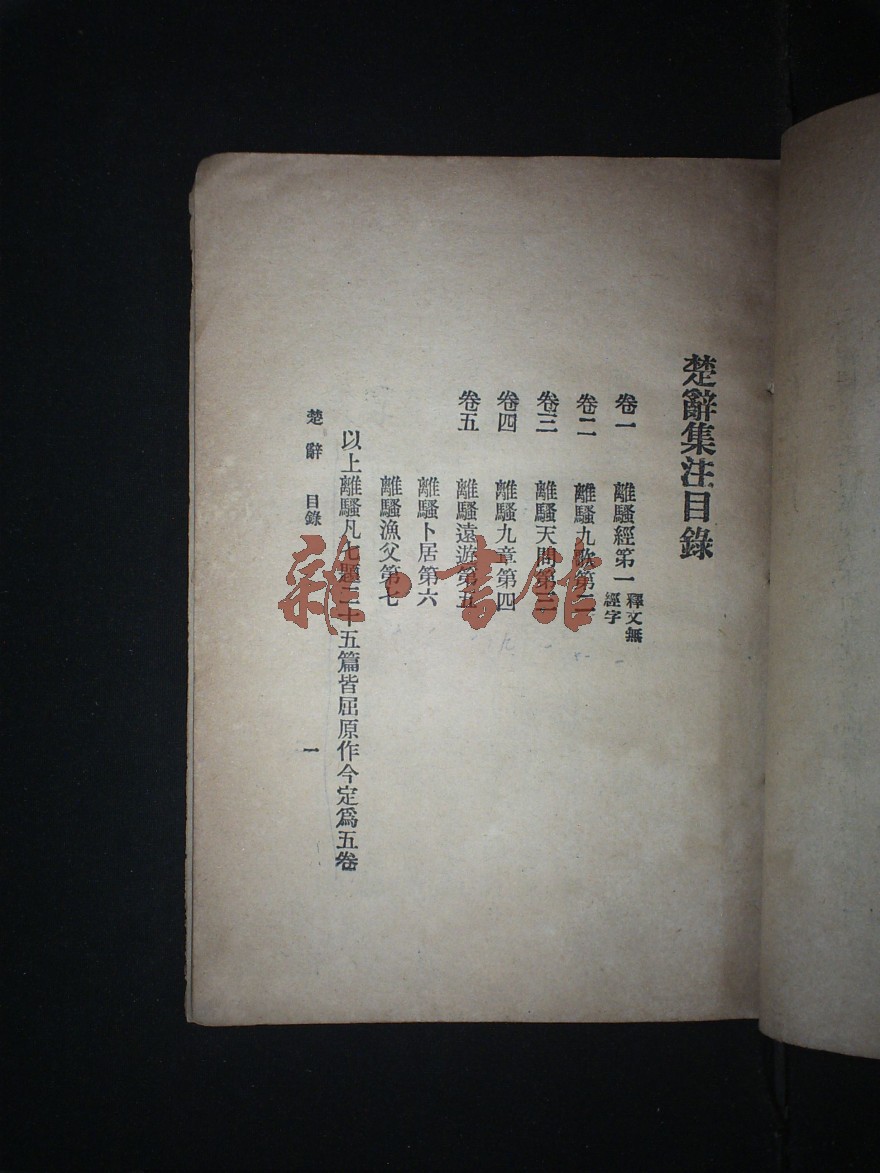 楚辭集注目錄
卷一 離騷經第一 釋文無經字
卷二 離騷九歌第二
卷三 離騷天問第三
卷四 離騷九章第四
卷五 離騷遠遊第五
離騷卜居第六
離騷漁父第七
以上離騷凡七題二十五篇皆屈原作今定爲五卷
楚辭 目錄 一
雜·書館